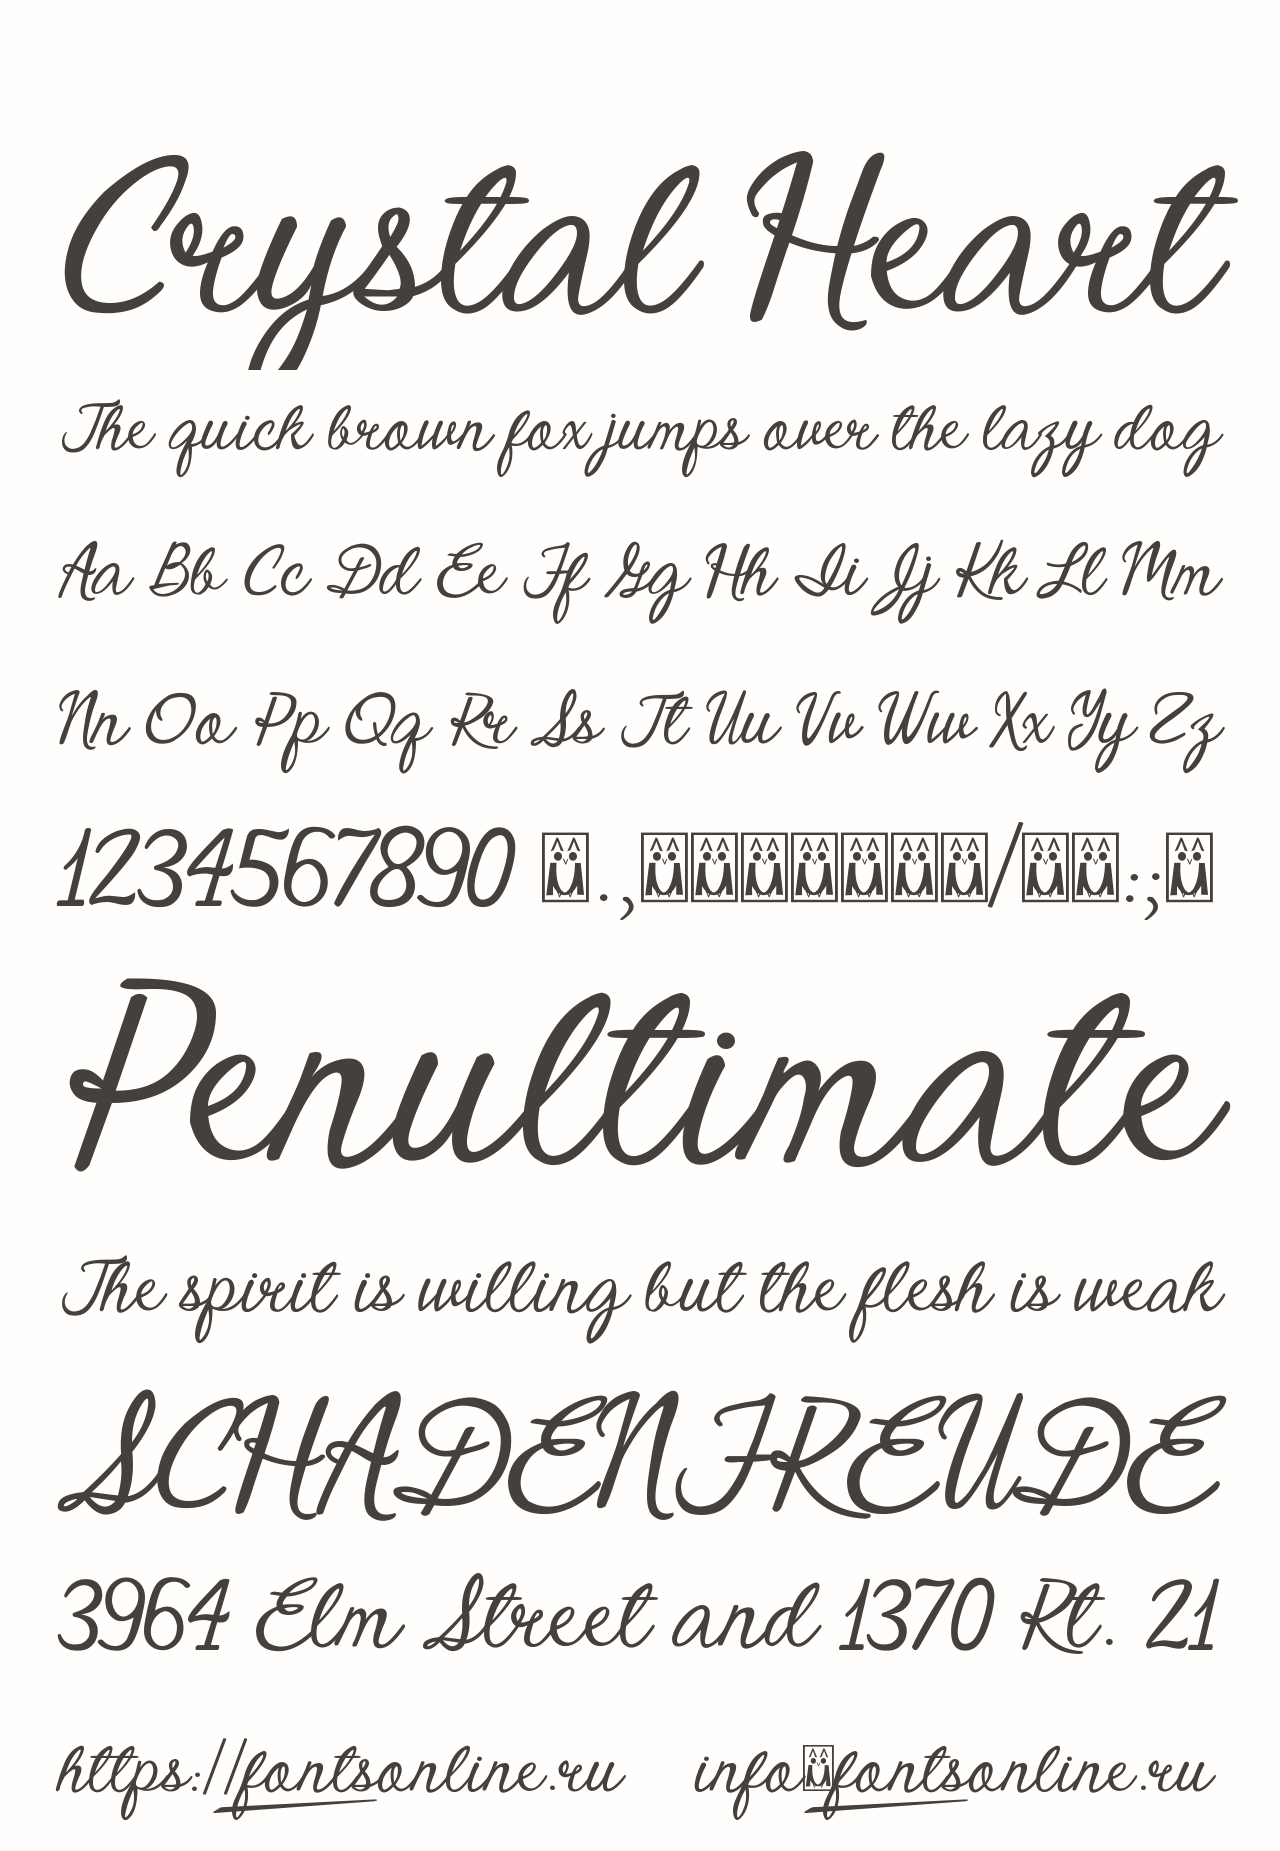 Crystal Heart
The quick brown fox jumps over the lazy dog
Aa Bb Cc Dd Ee Ff Gg Hh Ii Jj Kk Ll Mm
Nn Oo Pp Qq Rr Ss Tt Uu Vv Ww Xx Yy Zz
1234567890 .,/:;
Penultimate
The spirit is willing but the flesh is weak
SCHADENFREUDE
3964 Elm Street and 1370 Rt. 21
https://fontsonline.ru info fontsonline.ru